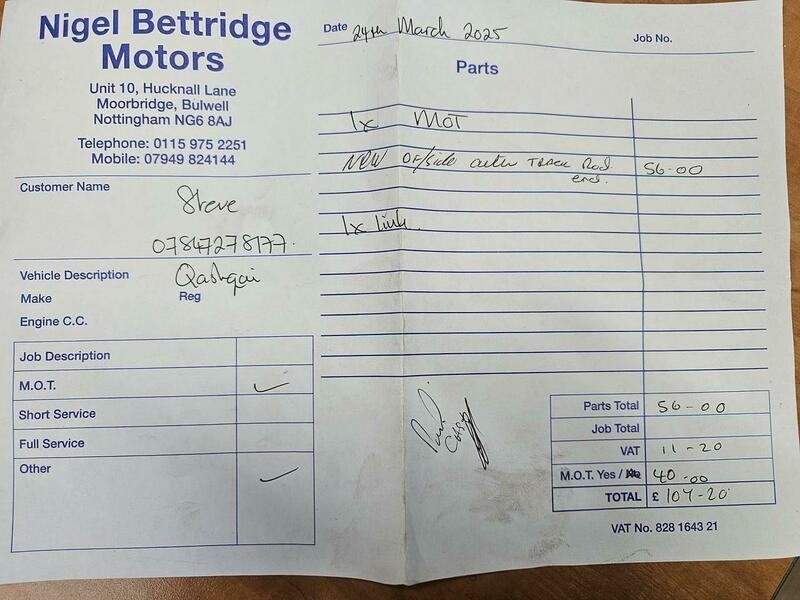 Nigel Bettridge
Motors
Unit 10, Hucknall Lane
Moorbridge, Bulwell
Nottingham NG6 8AJ
Telephone: 0115 975 2251
Mobile: 07949 824144
Customer Name
Steve
07847278177.
Vehicle Description Qashqai
Make Reg
Engine C.C.
Job Description
M.O.T. ✓
Short Service
Full Service
Other ✓
Date 24th March 2025
Job No.
Parts
1x MOT
NEW Of/side outer Track Rod 56-00
end.
1x link.
Paid
Parts Total 56-00
Job Total
VAT 11-20
M.O.T. Yes / No 40-00
TOTAL £ 107-20
VAT No. 828 1643 21